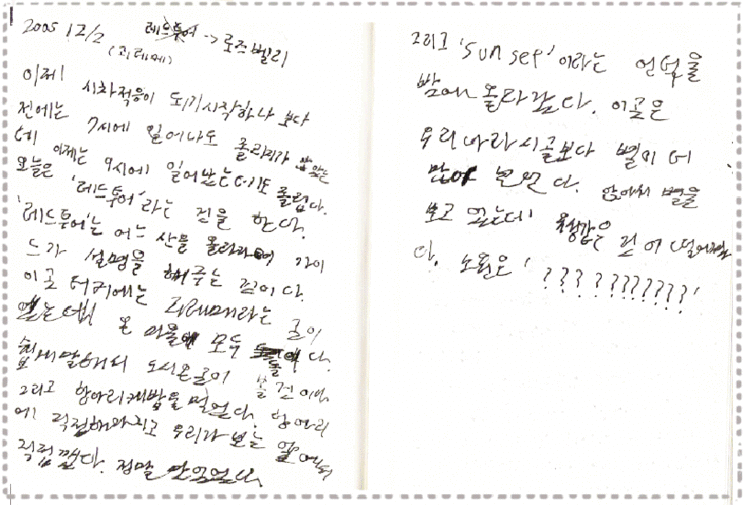 2005 12/2 레드투어 -> 로즈벨리
(괴레메)
이제 시차적응이 되기시작하나 보다
전에는 7시에 일어나도 졸리지가 않았는
데 이제는 9시에 일어났는데도 졸립다.
오늘은 '레드투어'라는 것을 한다.
'레드투어'는 어느 산을 올라가며 가이
드가 설명을 해주는 것이다.
이곳 터키에는 괴레메라는 곳이
있는데 온 마을에 모두 돌이다.
쉽게말해서 도시온곳이 돌 것이다.
그리고 항아리케밥을 먹었다. 항아리
에 직접해와지고 우리가 보는 앞에서
직접깼다. 정말 맛있었다
그리고 'Sun set'이라는 언덕을
밤에 올라갔다. 이곳은
우리나라시골보다 별이 더
많이 보였다. 앉아서 별을
보고 있는데
다. 소원은 '???????????'